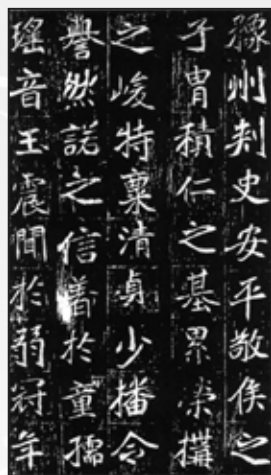 豫州刾史安平敬侯之
子胄積仁之基累榮構
之峻特稟清貞少播令
譽然諾之信著於童孺
瑤音玉震聞於弱冠年